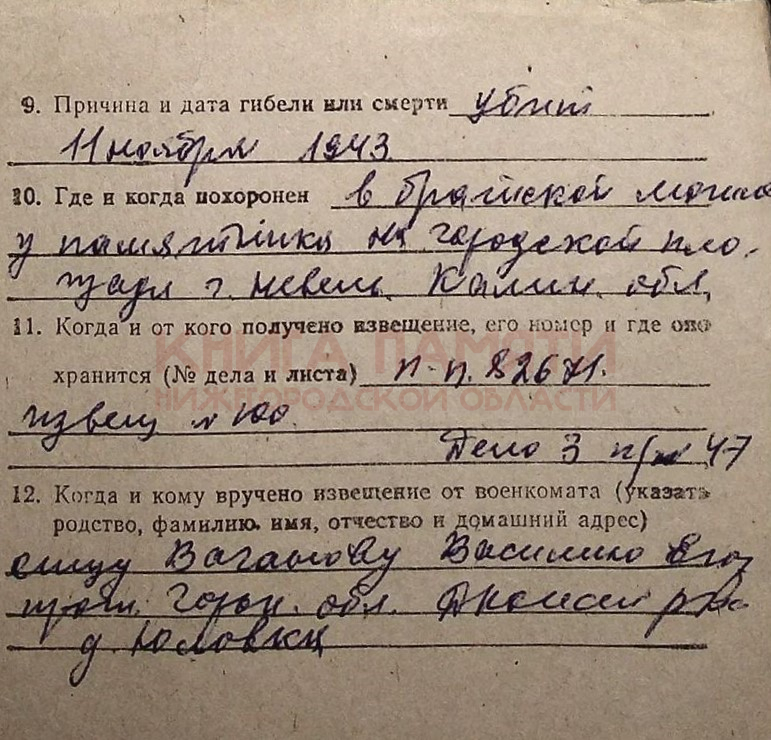 9. Причина и дата гибели или смерти убит
11 ноября 1943
10. Где и когда похоронен в братской моги
у памятника на городской пло
щади г. Невель Калин. обл.
11. Когда и от кого получено извещение, его номер и где оно
КНИГА ПАМЯТИ
хранится (№ дела и листа) п.п. 82671.
НИЖГОРОДСКОЙ ОБЛАСТИ
извещ № 100
Дело 3 47
12. Когда и кому вручено извещение от военкомата (указать
родство, фамилию. имя, отчество и домашний адрес)
Ваганову Василию
прож. Горьк. обл.
д. Юловка